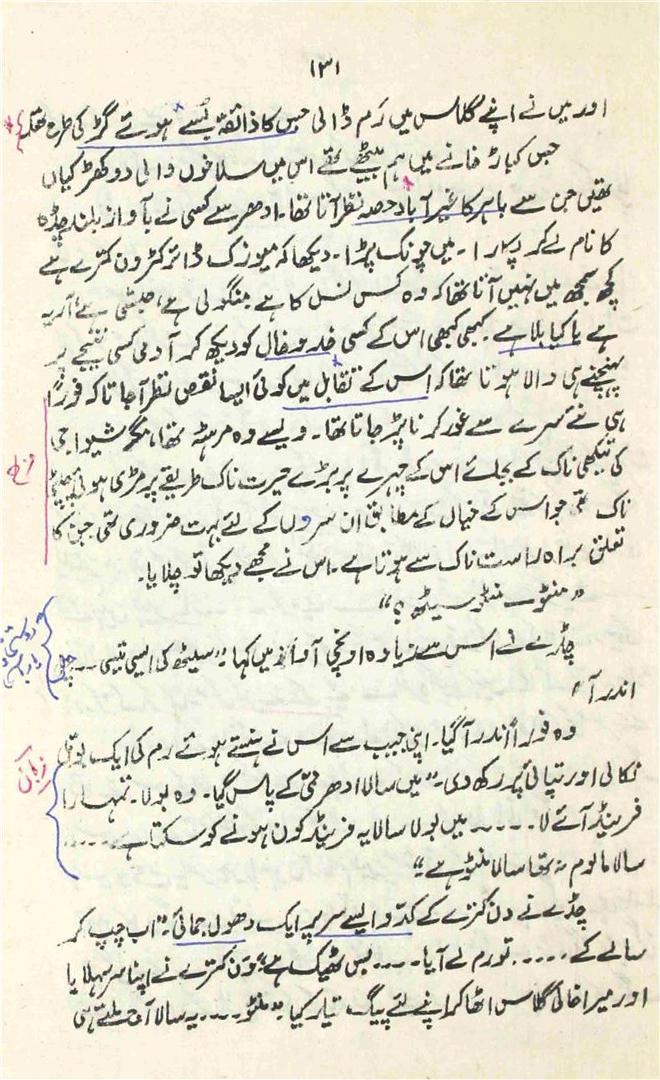 ۱۳۱
اور میں نے اپنے گلاس میں رَم ڈالی جس کا ذائقہ بُسے ہوئے گڑ کی طرح تھا۔
جس کباڑ خانے میں ہم بیٹھے تھے اس میں سلاخوں والی دو کھڑکیاں
تھیں جن سے باہر کا غیر آباد حصہ نظر آتا تھا۔ ادھر سے کسی نے بآواز بلند چڈہ
کا نام لے کر پکارا۔ میں چونک پڑا۔ دیکھا کہ میوزک ڈائرکٹر ون کترے ہے
کچھ سمجھ میں نہیں آتا تھا کہ وہ کس نسل کا ہے منگولی ہے، حبشی ہے، آریہ
ہے یا کیا بلا ہے۔ کبھی کبھی اس کے کسی خد و خال کو دیکھ کر آدمی کسی نتیجے پر
پہنچنے ہی والا ہوتا تھا کہ اس کے تقابل میں کوئی ایسا نقص نظر آجاتا کہ فوراً
ہی نئے سرے سے غور کرنا پڑ جاتا تھا۔ ویسے وہ مرہٹہ تھا، مگر شیوا جی
کی تیکھی ناک کے بجائے اس کے چہرے پر بڑے حیرت ناک طریقے پر مڑی ہوئی چپٹی
ناک تھی جو اس کے خیال کے مطابق ان سروں کے لئے بہت ضروری تھی جن کا
تعلق براہ راست ناک سے ہوتا ہے۔ اس نے مجھے دیکھا تو چلایا۔
"منٹو۔ منٹو سیٹھ؟"
چڈے نے اس سے زیادہ اونچی آواز میں کہا "سیٹھ کی ایسی تیسی -- چل
اندر آ"
وہ فوراً اندر آگیا۔ اپنی جیب سے اس نے ہنستے ہوئے رم کی ایک بوتل
نکالی اور تپائی پر رکھ دی۔ "میں سالا ادھر ممّی کے پاس گیا۔ وہ بولا۔ تمہارا
فرینڈ آئے لا ..... میں بولا سالا یہ فرینڈ کون ہونے کو سکتا ہے .....
سالا مالوم نہ تھا سالا منٹو ہے"
چڈے نے ون کترے کے کدّو ایسے سر پر ایک دھول جمائی۔ "اب چپ کر
سالے کے ..... تو رم لے آیا ---- بس ٹھیک ہے" ون کترے نے اپنا سر سہلایا
اور میرا خالی گلاس اٹھا کر اپنے لئے پیگ تیار کیا "منٹو --- یہ سالا آج ملتے ہی
زبان